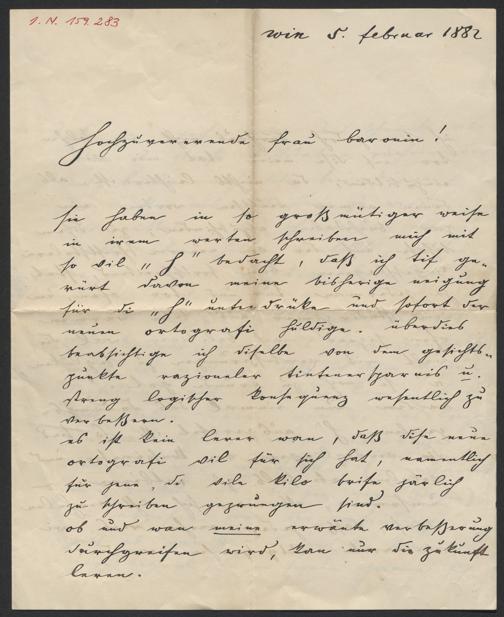 I. N. 159.283
win 5. februar 1882
Hochzuvererende frau baronin!
sie haben in so großmütiger weise
in irem werten schreiben mich mit
so vil „h" bedacht, daß ich tif ge-
rürt davon meine bisherige neigung
für di „h" unterdrüke und sofort der
neuen ortografi huldige. überdies
beabsichtige ich diselbe von dem gesichts-
punkte razioneler tintenersparnis u.
streng logischer konsequenz wesentlich zu
verbeßern.
es ist kein lerer wan, daß dise neue
ortografi vil für sich hat, namentlich
für jene, di vile kilo brife järlich
zu schreiben gezwungen sind.
ob und wan meine erwänte verbeßerung
durchgreifen wird, kan nur die zukunft
leren.